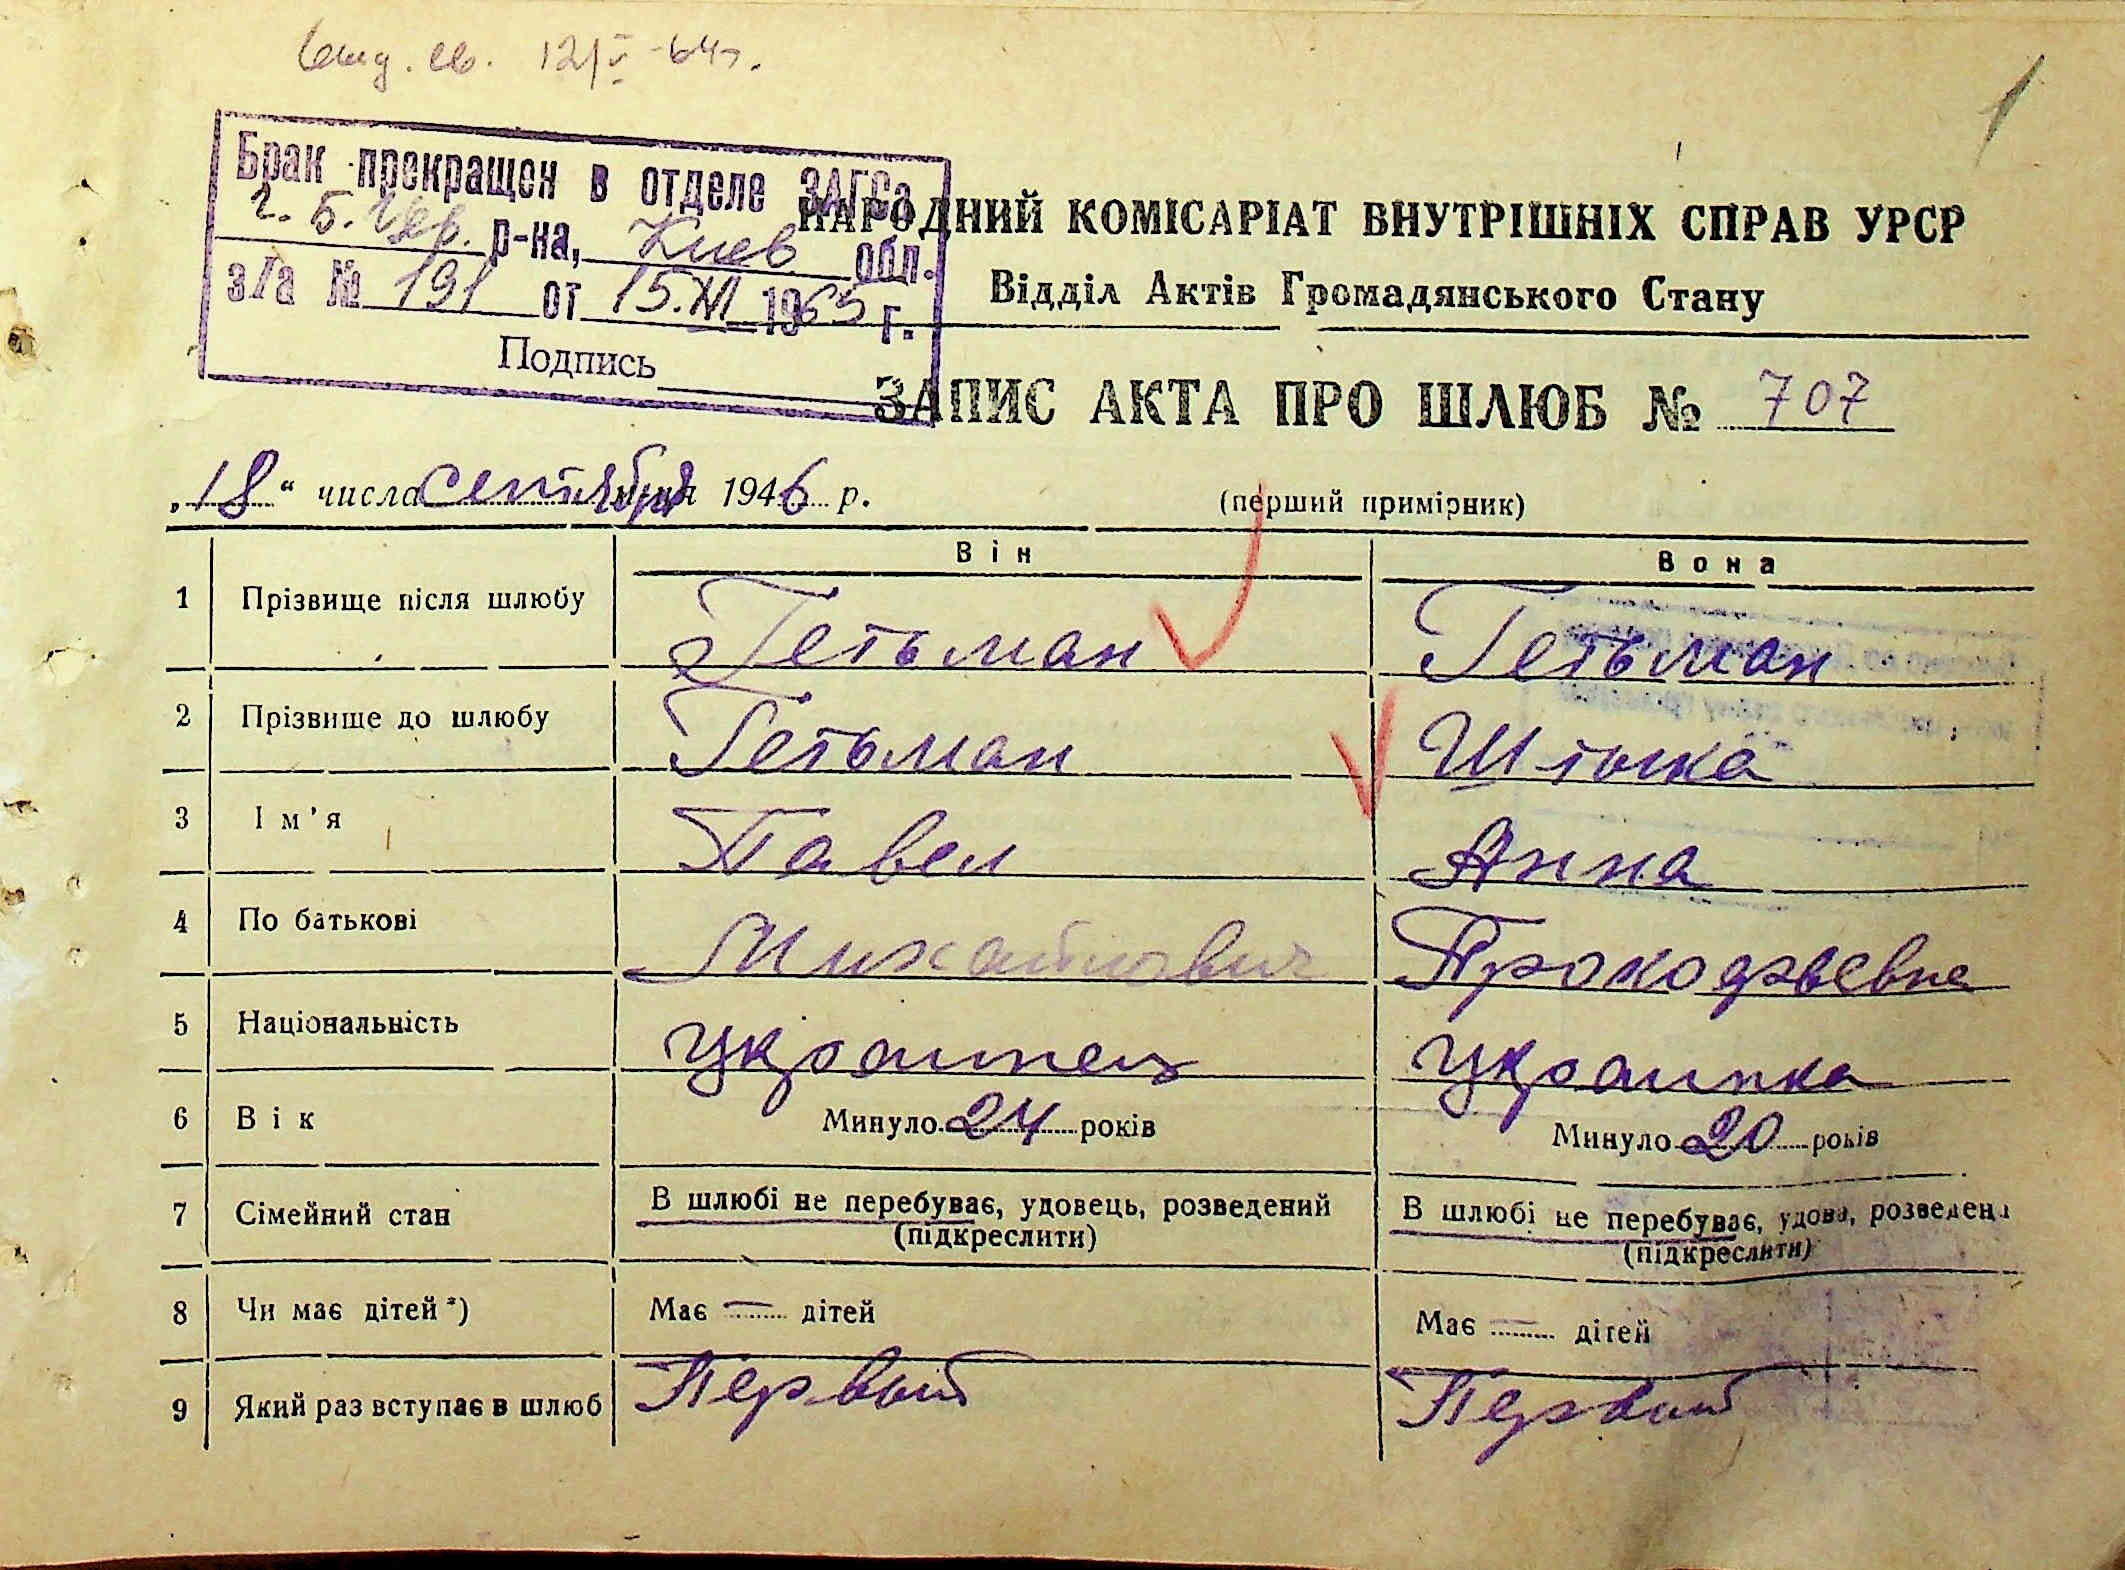 св. 12/V-64г.
1
Брак прекращен в отделе ЗАГСа
г. Б. Цер. р-на, Киев обл.
з/а № 191 от 15.XI 1965 г.
Подпись
НАРОДНИЙ КОМІСАРІАТ ВНУТРІШНІХ СПРАВ УРСР
Відділ Актів Громадянського Стану
ЗАПИС АКТА ПРО ШЛЮБ № 707
„18“ числа сентября м-ця 1946 р.
(перший примірник)
Він Вона
1 Прізвище після шлюбу Гетьман Гетьман
2 Прізвище до шлюбу Гетьман
3 Ім'я Павел Анна
4 По батькові Михайлович Прокофьевна
5 Національність украинец украинка
6 Вік Минуло 24 років Минуло 20 років
7 Сімейний стан В шлюбі не перебуває, удовець, розведений В шлюбі не перебуває, удова, розведена
(підкреслити) (підкреслити)
8 Чи має дітей*) Має — дітей Має — дітей
9 Який раз вступає в шлюб Первый Первый